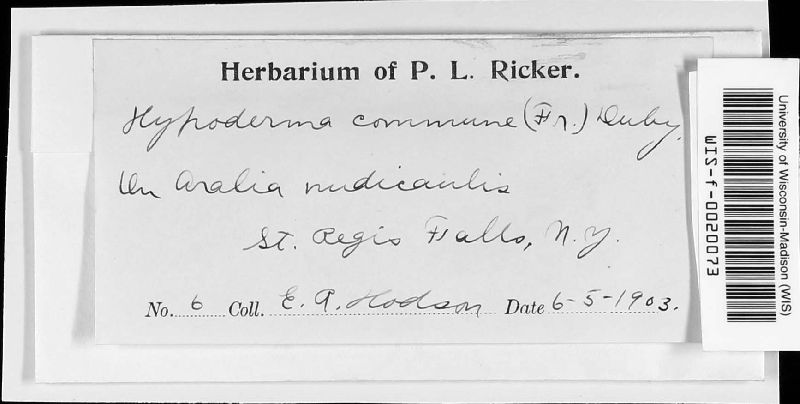 Herbarium of P. L. Ricker.
Hypoderma commune (Fr.) Duby.
On Aralia nudicaulis
St. Regis Falls, N.Y.
No. 6 Coll. E. A. Hodson Date 6-5-1903.
University of Wisconsin-Madison (WIS)
WIS-f-0020073